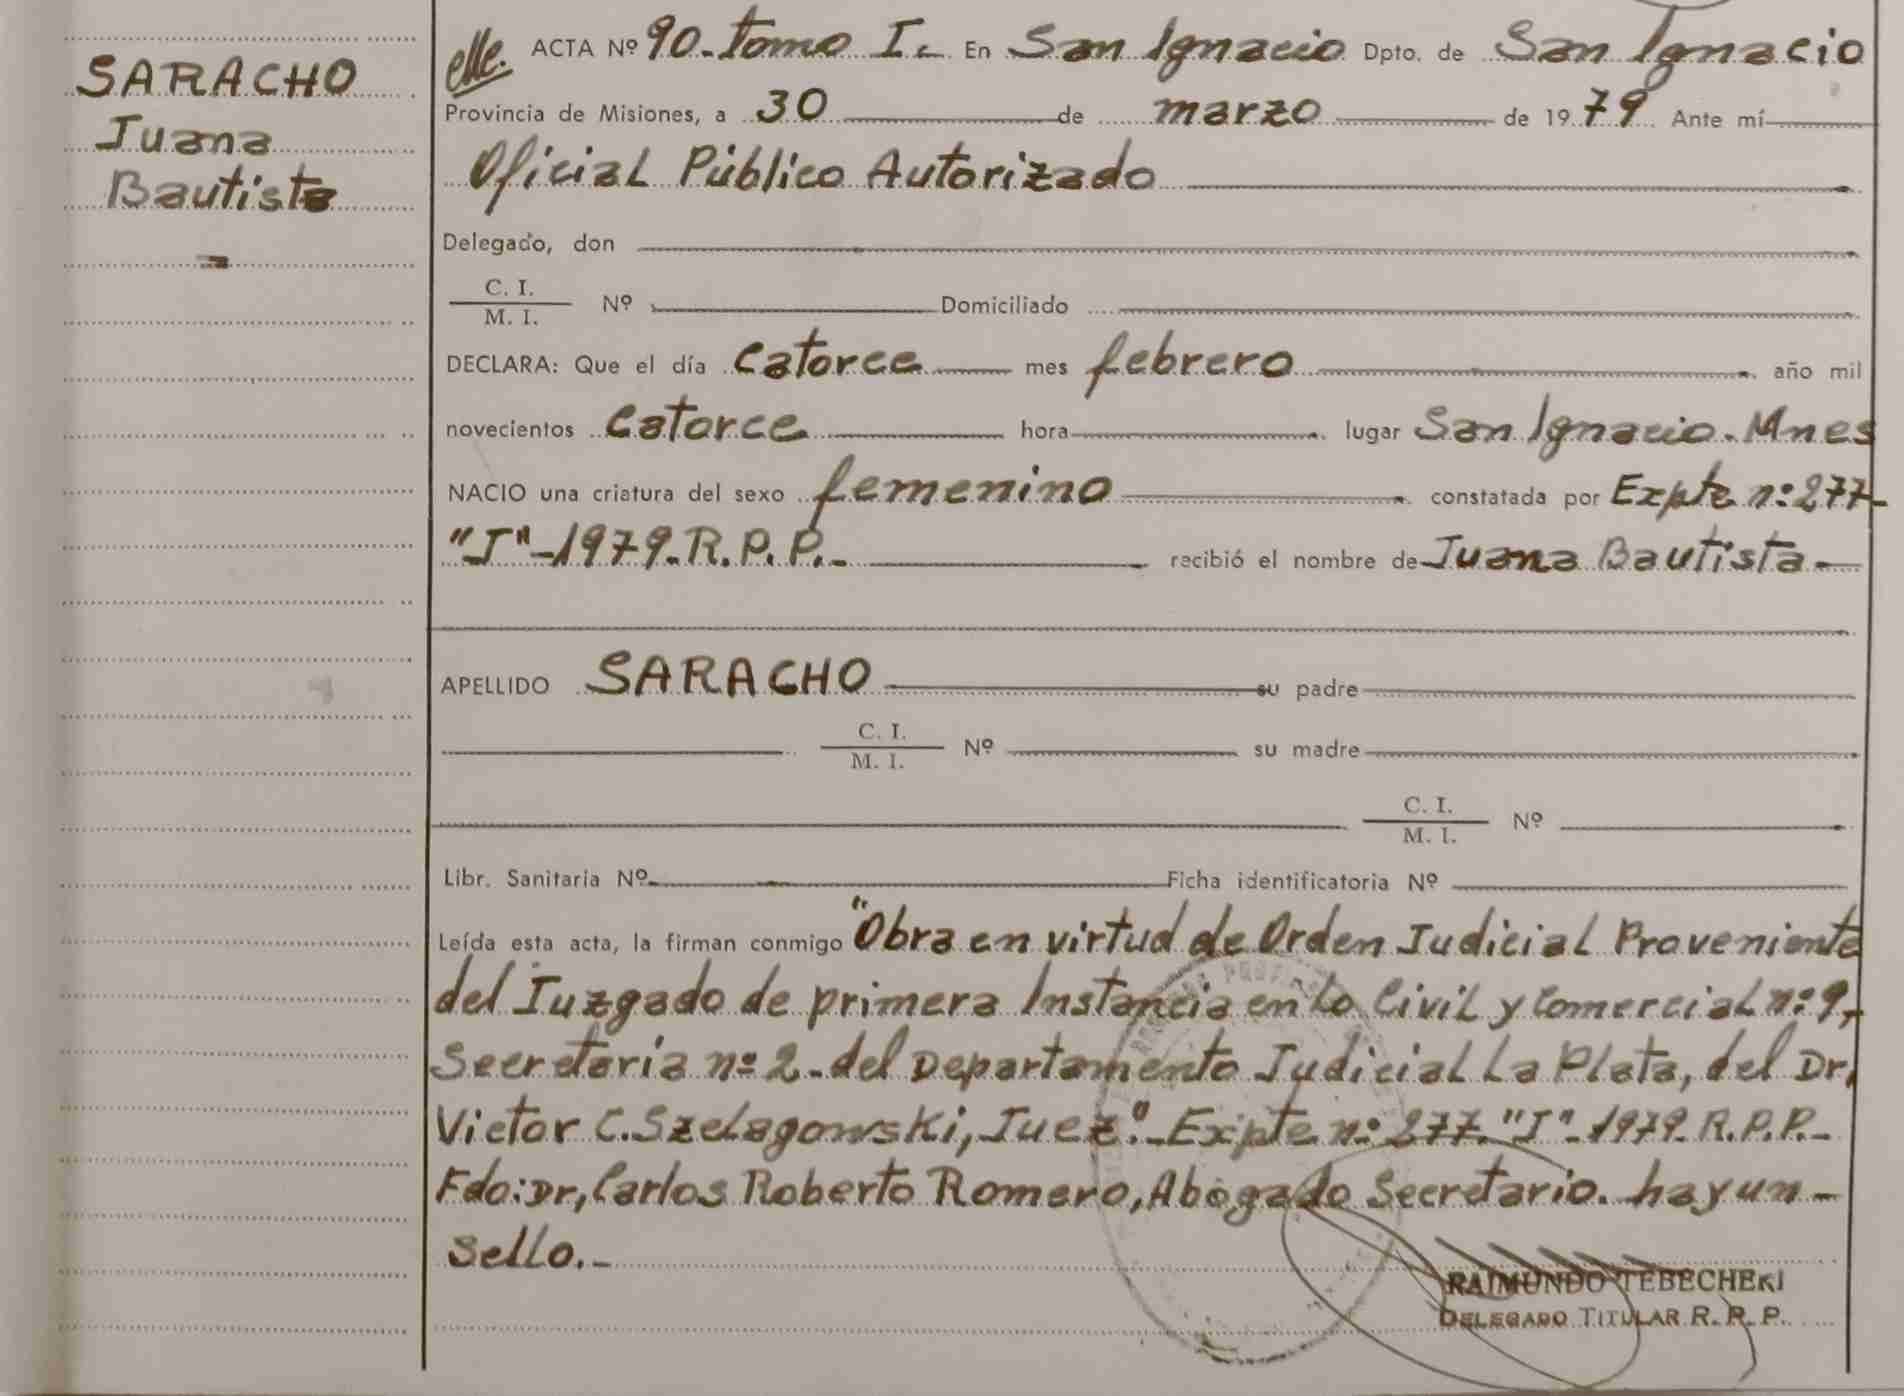 SARACHO
Juana
Bautista
ACTA Nº 90 - tomo I. En San Ignacio Dpto. de San Ignacio
Provincia de Misiones, a 30 de marzo de 1979 Ante mí
Oficial Público Autorizado
Delegado, don
C. I.
M. I. Nº Domiciliado
DECLARA: Que el día Catorce mes febrero año mil
novecientos Catorce hora lugar San Ignacio. Mnes
NACIO una criatura del sexo femenino constatada por Expte nº 277-
"J"-1979-R.P.P.- recibió el nombre de Juana Bautista-
APELLIDO SARACHO su padre
C. I.
M. I. Nº su madre
C. I.
M. I. Nº
Libr. Sanitaria Nº Ficha identificatoria Nº
Leída esta acta, la firman conmigo "Obra en virtud de Orden Judicial Proveniente
del Juzgado de primera Instancia en lo Civil y Comercial nº 9,
Secretaria nº 2 - del Departamento Judicial La Plata, del Dr,
Victor C. Szelagowski, Juez".- Expte nº 277. "J"-1979-R.P.P.-
Fdo: Dr, Carlos Roberto Romero, Abogado Secretario. hay un-
sello.-
RAIMUNDO TEBECHEKI
DELEGADO TITULAR R. P. P.